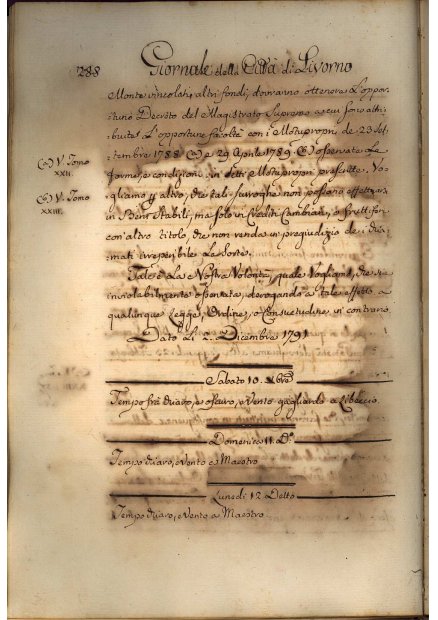 288
Giornale della Città di Livorno
Monte vincolati, altri fondi, dovranno ottenere l'oppor-
tuno Decreto del Magistrato Supremo a cui sono attri-
buite l'opportune facoltà con i Motupropri, de 23 Set-
tembre 1788 (a) e 29 Aprile 1789 (b) osservate le
(a) V. Tomo
XXII.
forme, e condizioni in detti Motupropri prescritte, Vo-
gliamo altro, che tali surroghe non possano effettuarsi
(b) V. Tomo
XXIII.
in Beni Stabili, ma solo in Crediti Cambiari, o fruttiferi
con altro titolo che non renda in pregiudizio de chia-
mati irreperibile la sorte.
Tale è la Nostra Volontà, quale Vogliamo, che sia
inviolabilmente osservata, derogando a tale effetto a
qualunque Legge, Ordine, o Consuetudine in contrario
Dato li 2. Dicembre 1791
Sabato 10. Xbre
Tempo frà chiaro, e oscuro, e Vento gagliardo a Libeccio
Domenica 11. Do.
Tempo chiaro, e Vento a Maestro
Lunedi 12 Detto
Tempo chiaro, e Vento a Maestro